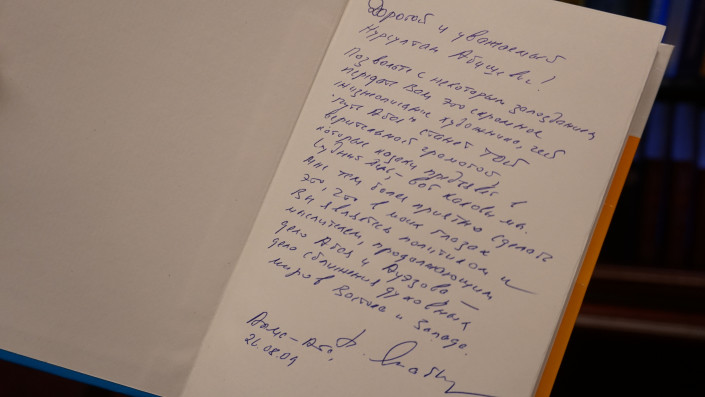 Дорогой и уважаемый
Нурсултан Абишевич!
Позвольте с некоторым запозданием
передать Вам это скромное
жизнеописание художника, чей
"Путь Абая" станет той
верительной грамотой
которые казахи предъявят в
Судный день, - вот каковы мы.
Мне тем более приятно сделать
это, что в моих глазах
Вы являетесь политиком и
мыслителем, продолжающим
дело Абая и Ауэзова —
дело сближения духовных
миров Востока и Запада.
Алма-Ата,
26.08.09